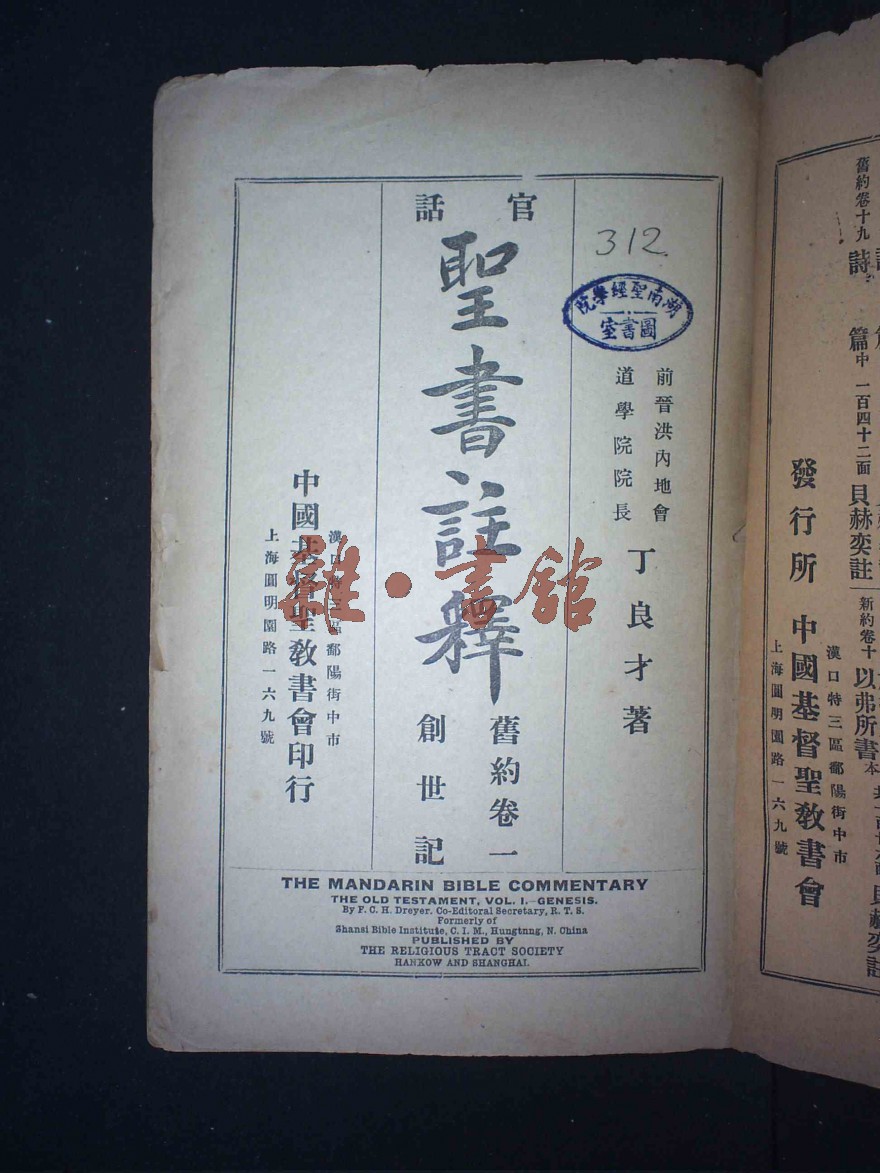 官話
聖書註釋
舊約卷一
創世記
312
湖南聖經學院
圖書室
前晉洪內地會
道學院院長
丁良才著
漢口特三區鄱陽街中市
上海圓明園路一六九號
中國基督聖教書會印行
雜·書館
THE MANDARIN BIBLE COMMENTARY
THE OLD TESTAMENT, VOL. I.—GENESIS.
By F. C. H. Dreyer. Co-Editoral Secretary, R. T. S.
Formerly of
Shansi Bible Institute, C. I. M., Hungtung, N. China
PUBLISHED BY
THE RELIGIOUS TRACT SOCIETY
HANKOW AND SHANGHAI.
舊約卷十九
詩
篇中 一百四十二面 貝赫奕註
新約卷十
以弗所書
貝赫奕註
發行所 中國基督聖教書會
漢口特三區鄱陽街中市
上海圓明園路一六九號